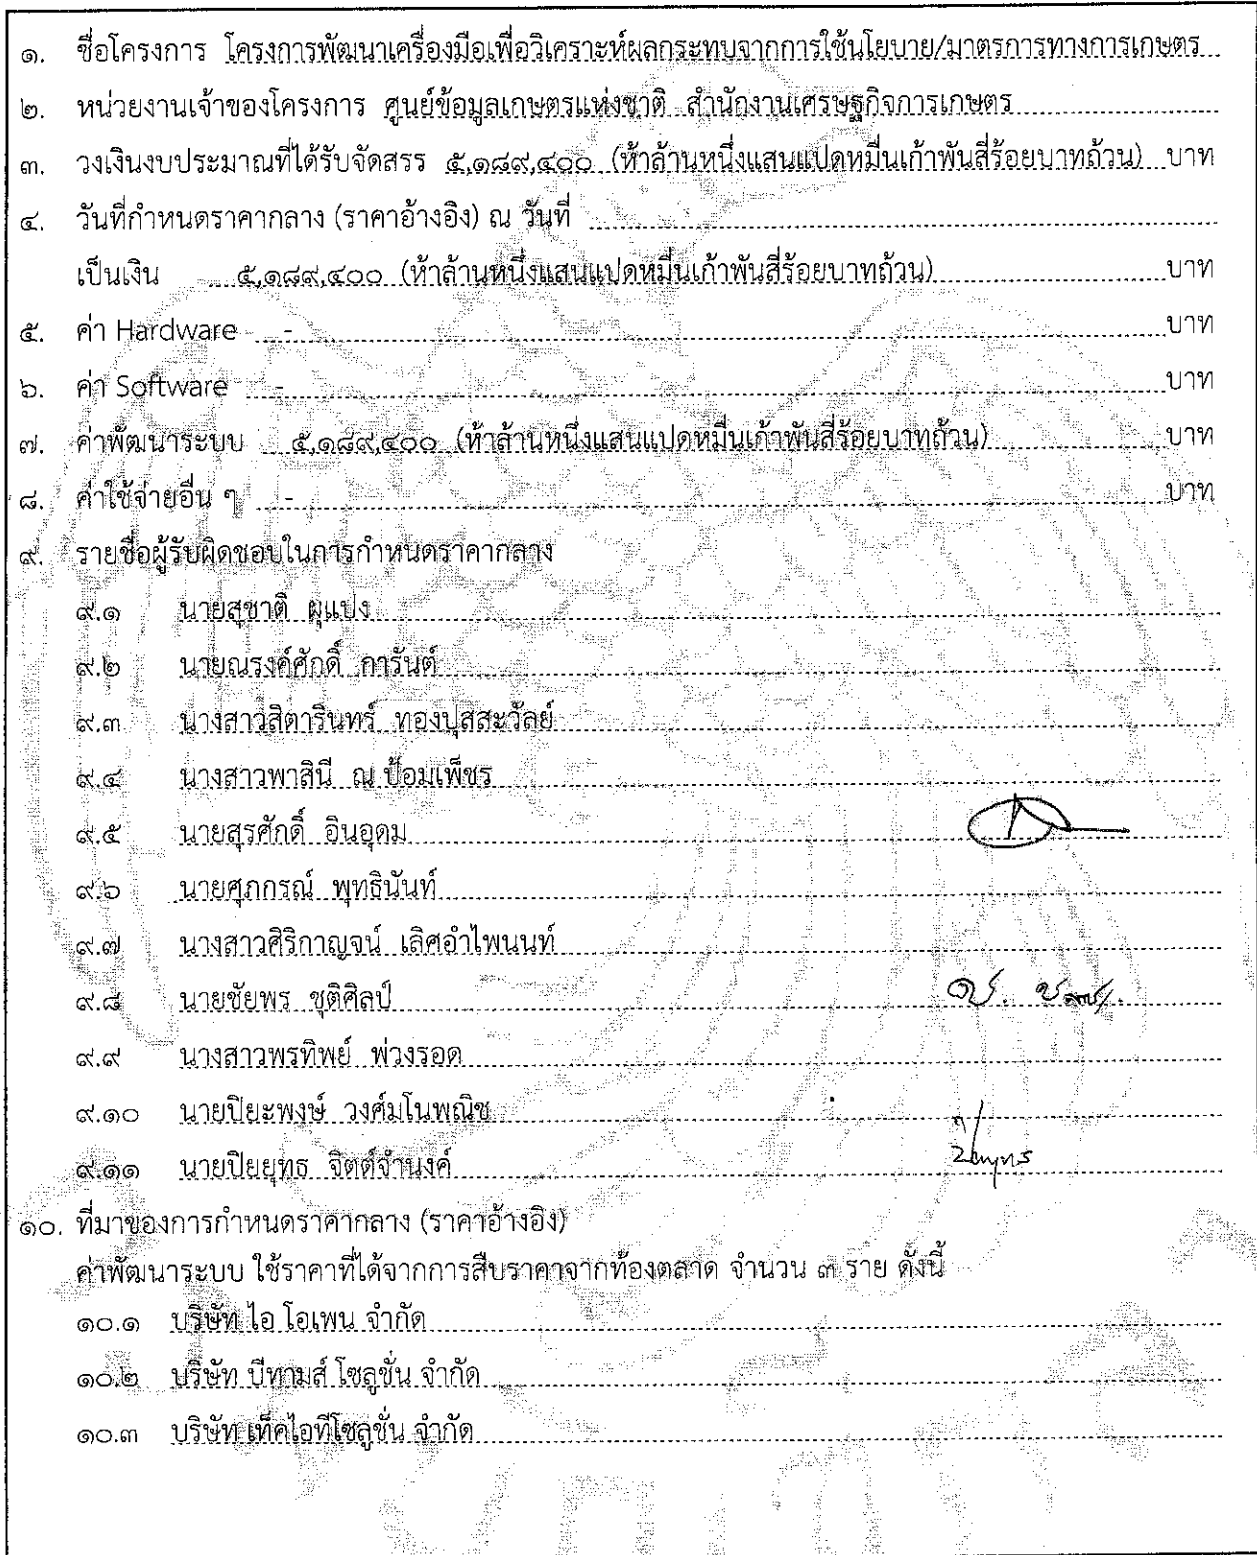 ๑. ชื่อโครงการ โครงการพัฒนาเครื่องมือเพื่อวิเคราะห์ผลกระทบจากการใช้นโยบาย/มาตรการทางการเกษตร
๒. หน่วยงานเจ้าของโครงการ ศูนย์ข้อมูลเกษตรแห่งชาติ สำนักงานเศรษฐกิจการเกษตร
๓. วงเงินงบประมาณที่ได้รับจัดสรร ๕,๑๘๙,๔๐๐ (ห้าล้านหนึ่งแสนแปดหมื่นเก้าพันสี่ร้อยบาทถ้วน) บาท
๔. วันที่กำหนดราคากลาง (ราคาอ้างอิง) ณ วันที่
เป็นเงิน ๕,๑๘๙,๔๐๐ (ห้าล้านหนึ่งแสนแปดหมื่นเก้าพันสี่ร้อยบาทถ้วน) บาท
๕. ค่า Hardware - บาท
๖. ค่า Software - บาท
๗. ค่าพัฒนาระบบ ๕,๑๘๙,๔๐๐ (ห้าล้านหนึ่งแสนแปดหมื่นเก้าพันสี่ร้อยบาทถ้วน) บาท
๘. ค่าใช้จ่ายอื่น ๆ - บาท
๙. รายชื่อผู้รับผิดชอบในการกำหนดราคากลาง
๙.๑ นายสุชาติ ผุแปง
๙.๒ นายณรงค์ศักดิ์ การันต์
๙.๓ นางสาวสิตารินทร์ ทองปุสสะวัลย์
๙.๔ นางสาวพาสินี ณ ป้อมเพ็ชร
๙.๕ นายสุรศักดิ์ อินอุดม
๙.๖ นายศุภกรณ์ พุทธินันท์
๙.๗ นางสาวศิริกาญจน์ เลิศอำไพนนท์
๙.๘ นายชัยพร ชุติศิลป์
๙.๙ นางสาวพรทิพย์ พ่วงรอด
๙.๑๐ นายปิยะพงษ์ วงศ์มโนพณิช
๙.๑๑ นายปิยยุทธ จิตต์จำนงค์
๑๐. ที่มาของการกำหนดราคากลาง (ราคาอ้างอิง)
ค่าพัฒนาระบบ ใช้ราคาที่ได้จากการสืบราคาจากท้องตลาด จำนวน ๓ ราย ดังนี้
๑๐.๑ บริษัท ไอ โอเพน จำกัด
๑๐.๒ บริษัท บีทามส์ โซลูชั่น จำกัด
๑๐.๓ บริษัท เท็คไอทีโซลูชั่น จำกัด